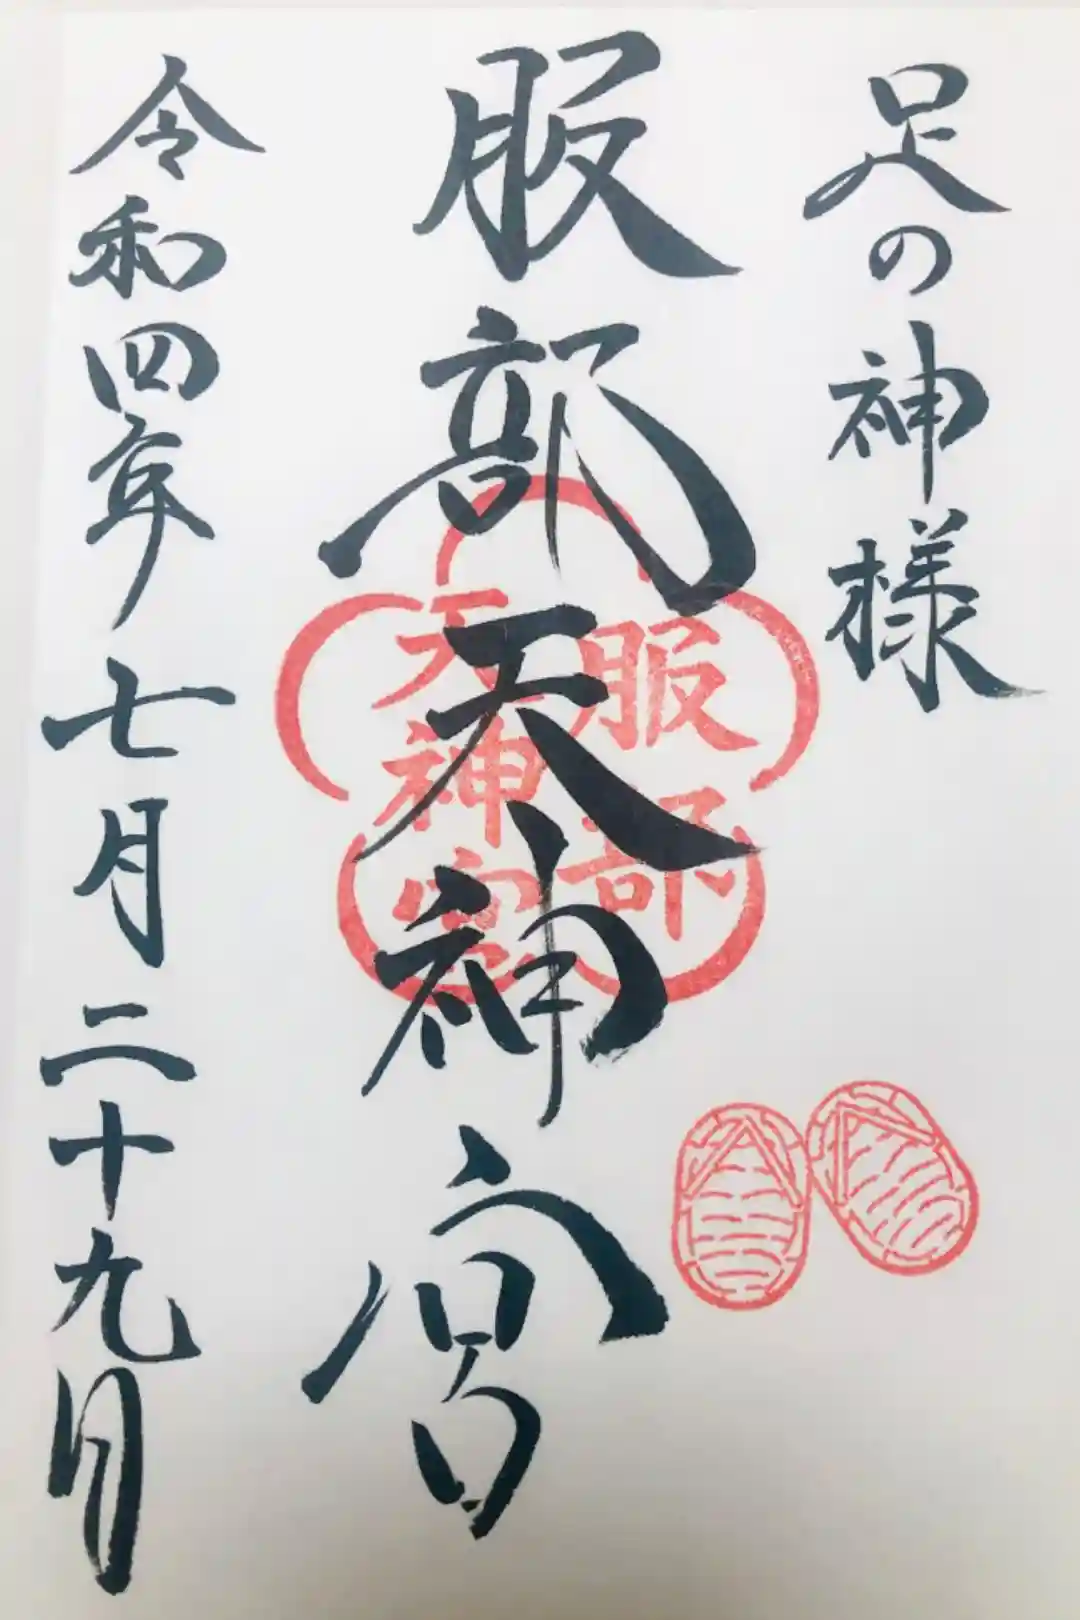 足の神様
服部天神宮
服部
天神宮
令和四年七月二十九日